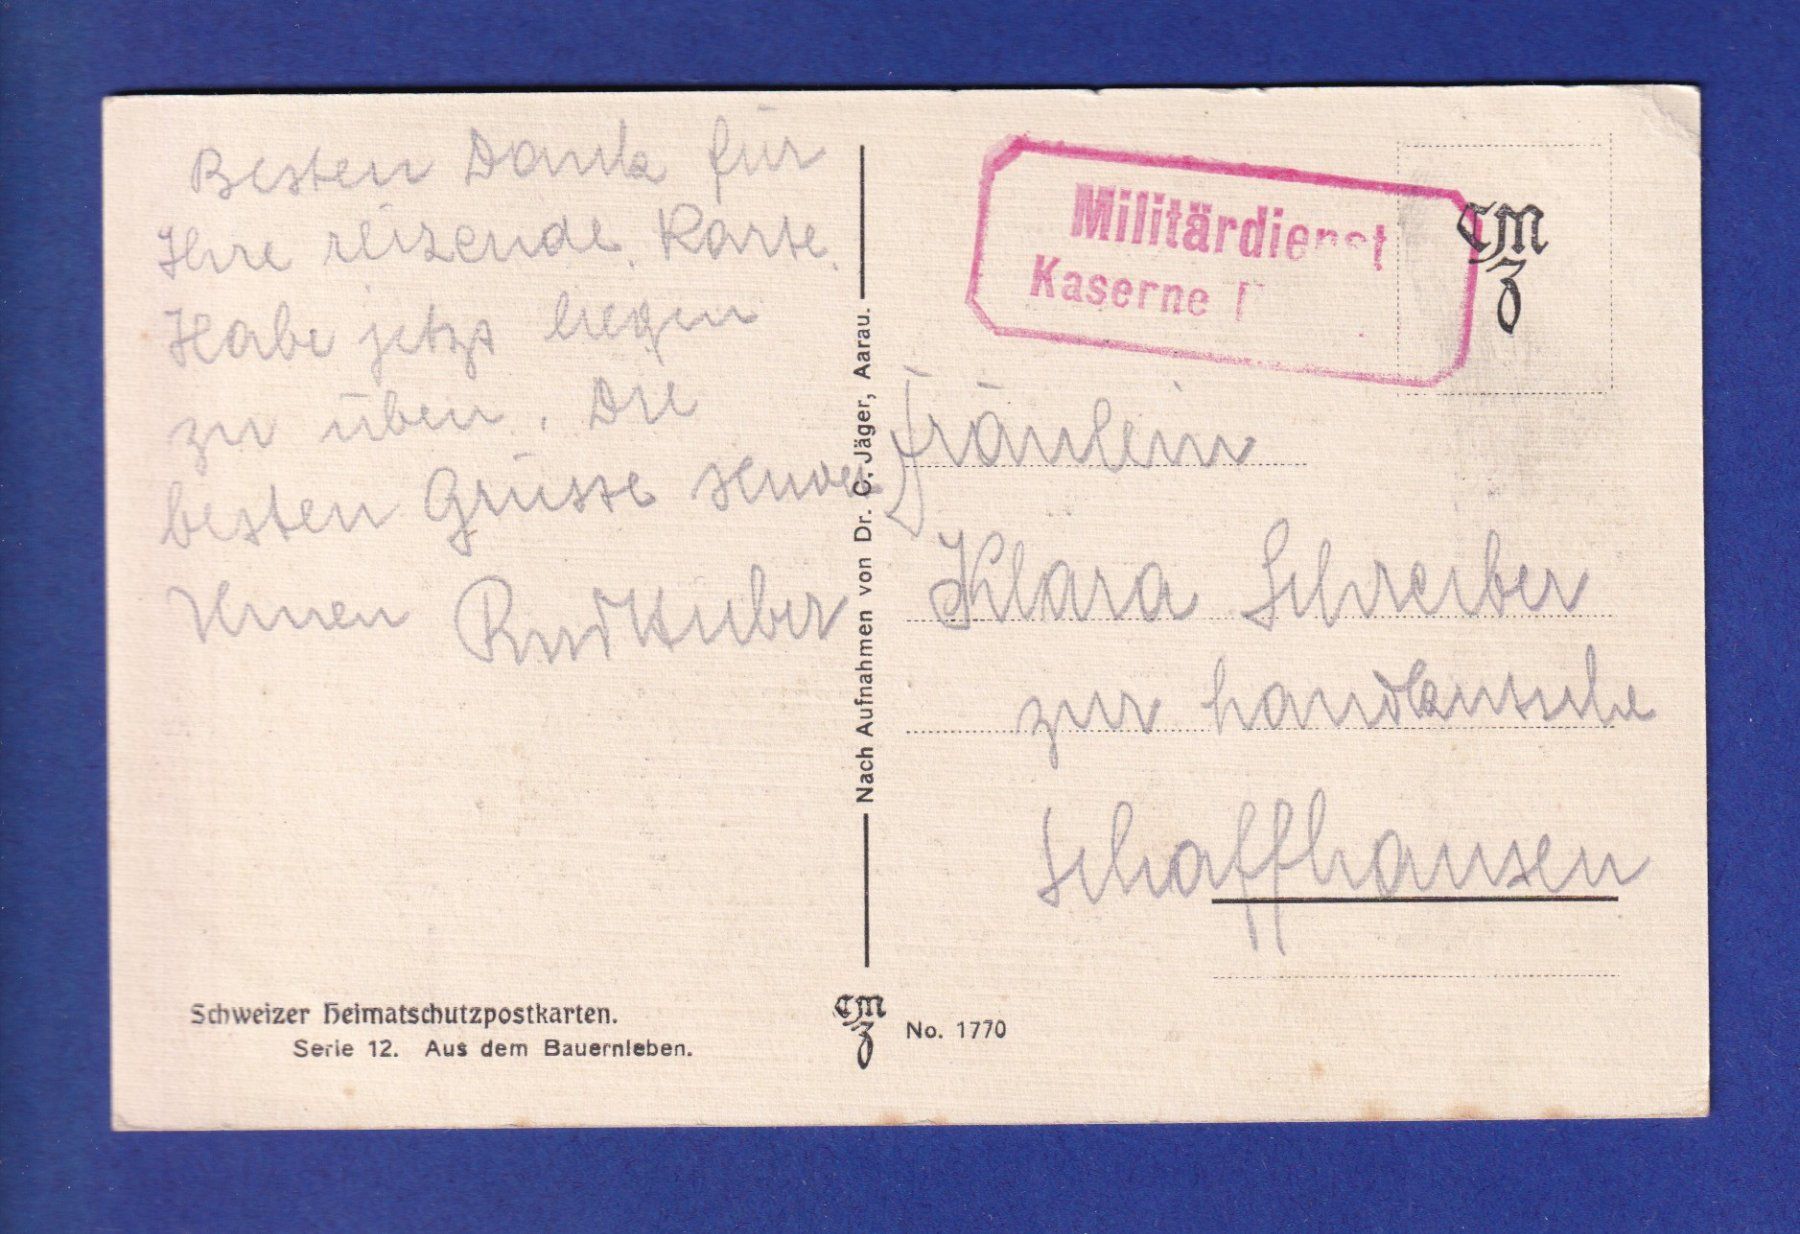 Besten Dank für
Ihre reizende Karte.
Habe jetzt liegen
zu üben. Die
besten Grüsse sendet
Ihnen Rud Huber
Nach Aufnahmen von Dr. C. Jäger, Aarau.
Militärdienst
Kaserne
CMZ
Fräulein
Klara Schreiber
zur
Schaffhausen
Schweizer Heimatschutzpostkarten.
Serie 12. Aus dem Bauernleben.
CMZ
No. 1770